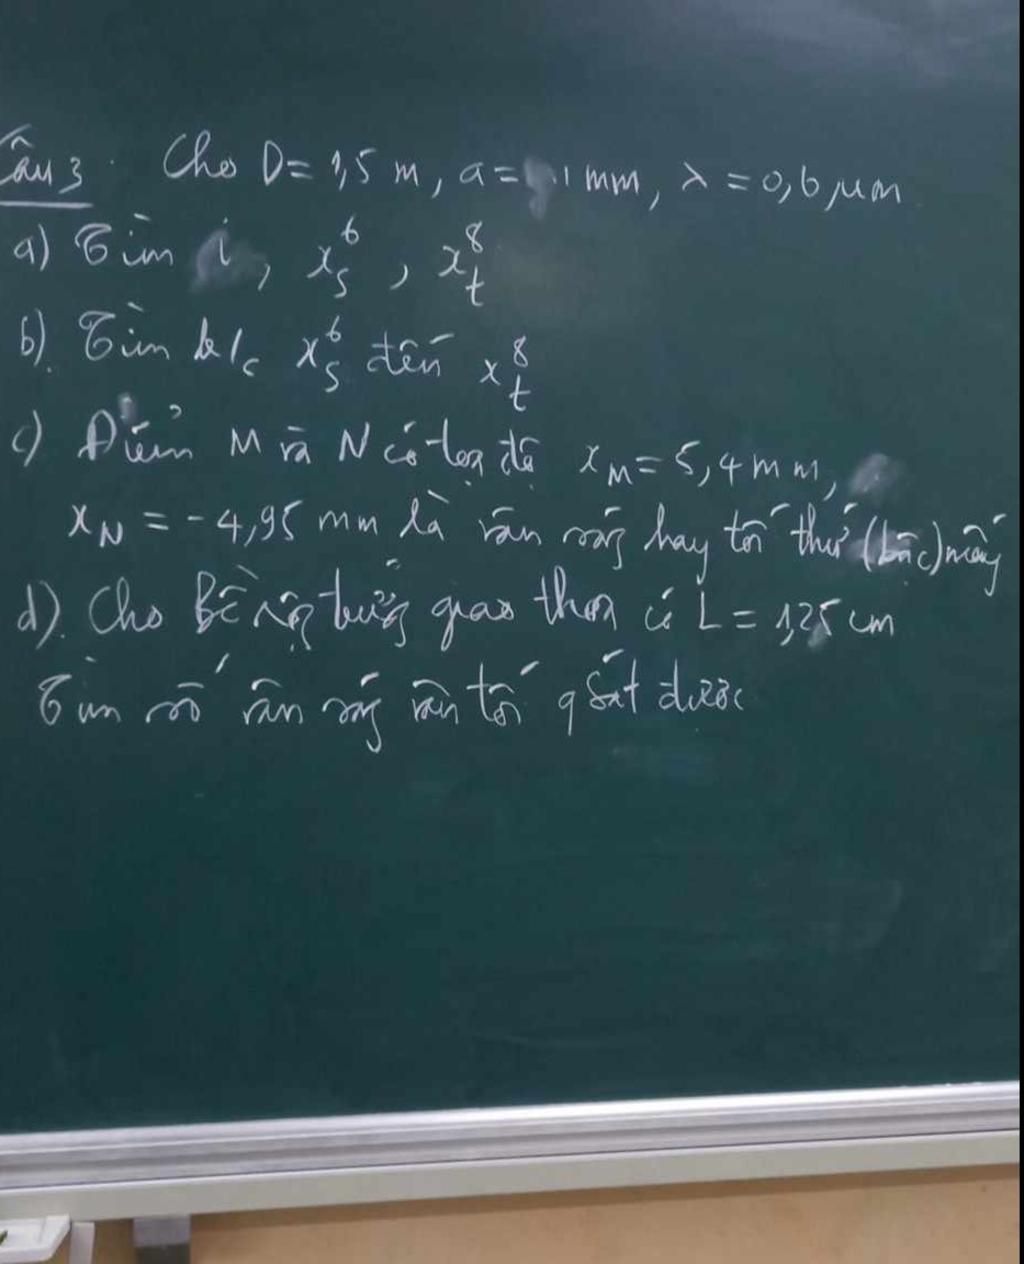 Câu 3. Cho D = 1,5 m, a = 1 mm, λ = 0,6 μm
a) Tìm i, x_s^6, x_t^8
b). Tìm k/c x_s^6 đến x_t^8
c) Điểm M và N có tọa độ x_M = 5,4 mm,
x_N = -4,95 mm là vân sáng hay tối thứ (bậc) mấy
d). Cho Bề rộng trường giao thoa có L = 1,25 cm
Tìm số vân sáng vân tối q sát được